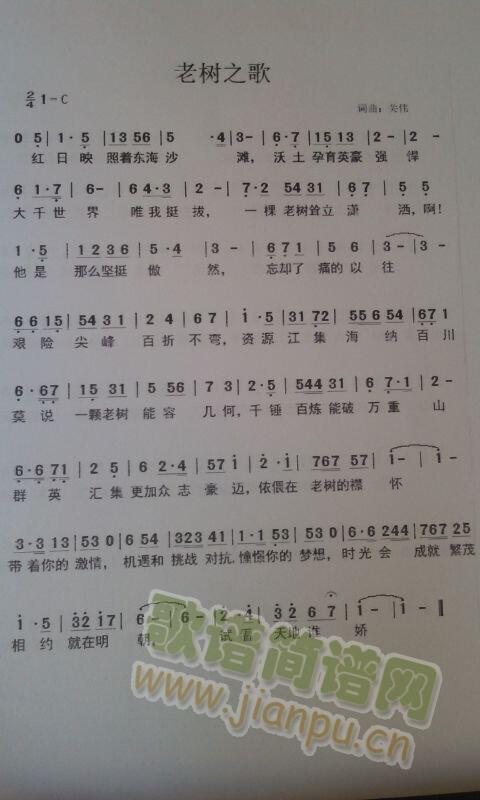 老树之歌
2/4 1-C
词曲：关伟
0 5 | 1· 5 | 13 56 | 5 ·4 | 3- | 6·7 | 15 13 | 2- | 2-
红日映 照着东海沙 滩，沃土孕育英豪强 悍
6 1·7 | 6- | 64·3 | 2- | 7·2 | 54 31 | 6 1·2 | 67 | 5 5
大千世 界 唯我挺 拔，一棵老树耸立潇 洒，啊！
1 ·5 | 1 2 3 6 | 5 ·4 | 3 - | 6 7 1 | 5 6 | 3 - | 3 - |
他是 那么坚挺 傲 然， 忘却了 痛的以 往
6 6 1 5 | 54 31 | 2 4 | 6 7 | i· 5 | 31 72 | 55 6 54 | 67 1
艰险 尖峰 百折 不弯，资源 江集 海 纳 百川
6 · 67 | 15 31 | 5 56 | 7 3 | 2·5 | 544 31 | 6 7·1 | 2-
莫说 一颗老树 能容 几何，千锤 百炼能破 万重 山
6·6 71 | 2 5 | 6 2·4 | 57 i | 2· i | 767 57 | i- | i- |
群英 汇集 更加众 志豪 迈，依偎在 老树的襟 怀
3·3 13 | 53 0 | 6 54 | 323 41 | 1·1 53 | 53 0 | 6·6 244 | 767 25
带着你的 激情，机遇和 挑战 对抗.憧憬你的 梦想，时光会 成就 繁茂
i · 5 | 32 17 | 6- | 6- | 2 ·4 | 32 6 7 | i- | i- ‖
相约 就在明 朝， 试看 天地 娇
歌谱简谱网
www.jianpu.cn